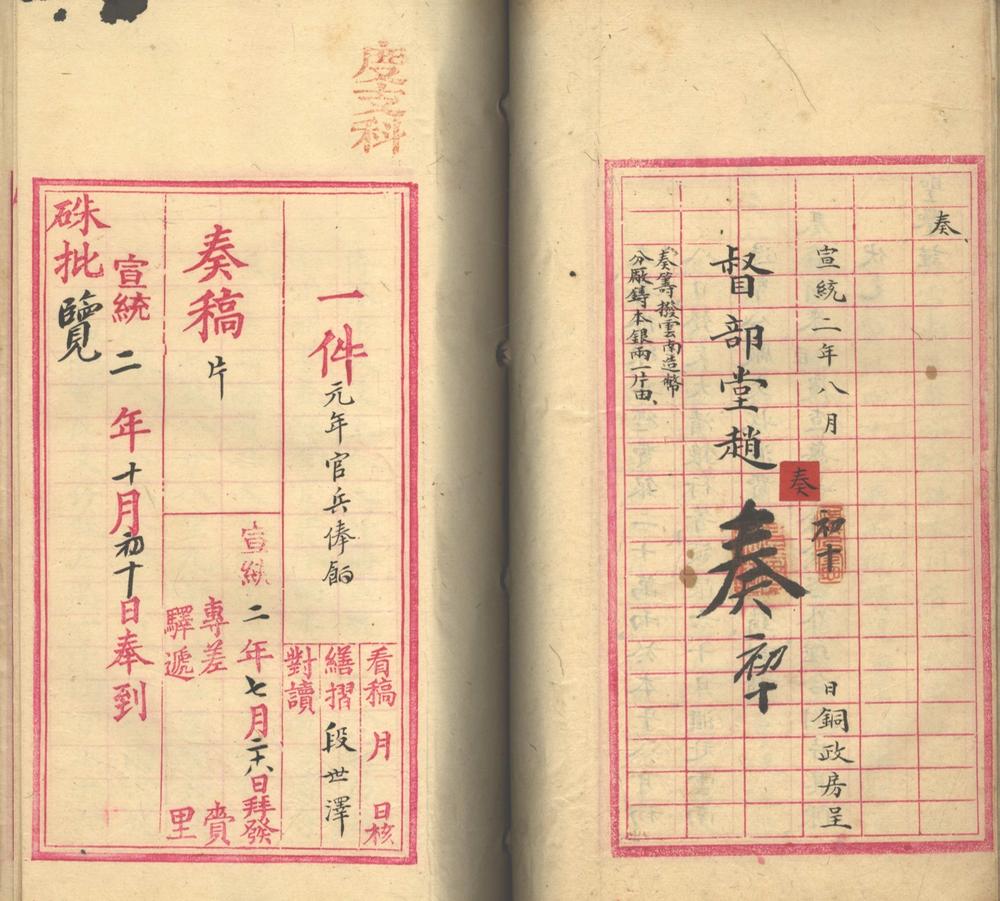 奏
宣統二年八月初十日銅政房呈
奏
督部堂趙
奏
初十
奏籌撥雲南造幣
分厰鑄本銀兩一片由
度支科
看稿 月 日核
一件元年官兵俸餉
繕摺 段世澤
對讀
宣統二年七月日拜發
奏稿片
專差 賫
驛遞 里
宣統二年十月初十日奉到
硃批覽